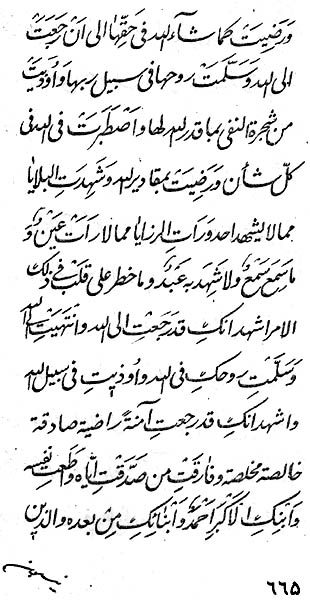 و رضیت کما شاء الله فی حقها الی ان رجعت
الی الله و سلّمت روحها فی سبیل ربها و اُوذیت
من شجرة النفی بما قدر الله لها و اصطبرت فی الله فی
کلّ شأن و رضیت بمقادیر الله و شهدت البلایا
مما لا یشهد احد و رات الرزایا مما لا رات عینٌ و
ما سمع سمعٌ و لا شهد به عبدٌ و ما خطر علی قلب فی ذلک
الامر اشهد انک قد رجعت الی الله و انتهیت الی الله
و سلّمت روحک فی الله و اوذیت فی سبیل الله
و اشهد انک قد رجعت آمنةً راضیة صادقة
خالصة مخلصة و فارقت من صدّقت ایاه و اطعت نفسه
و ابنک الاکبر احمد و ابنائک من بعده والذین
۶۶۵